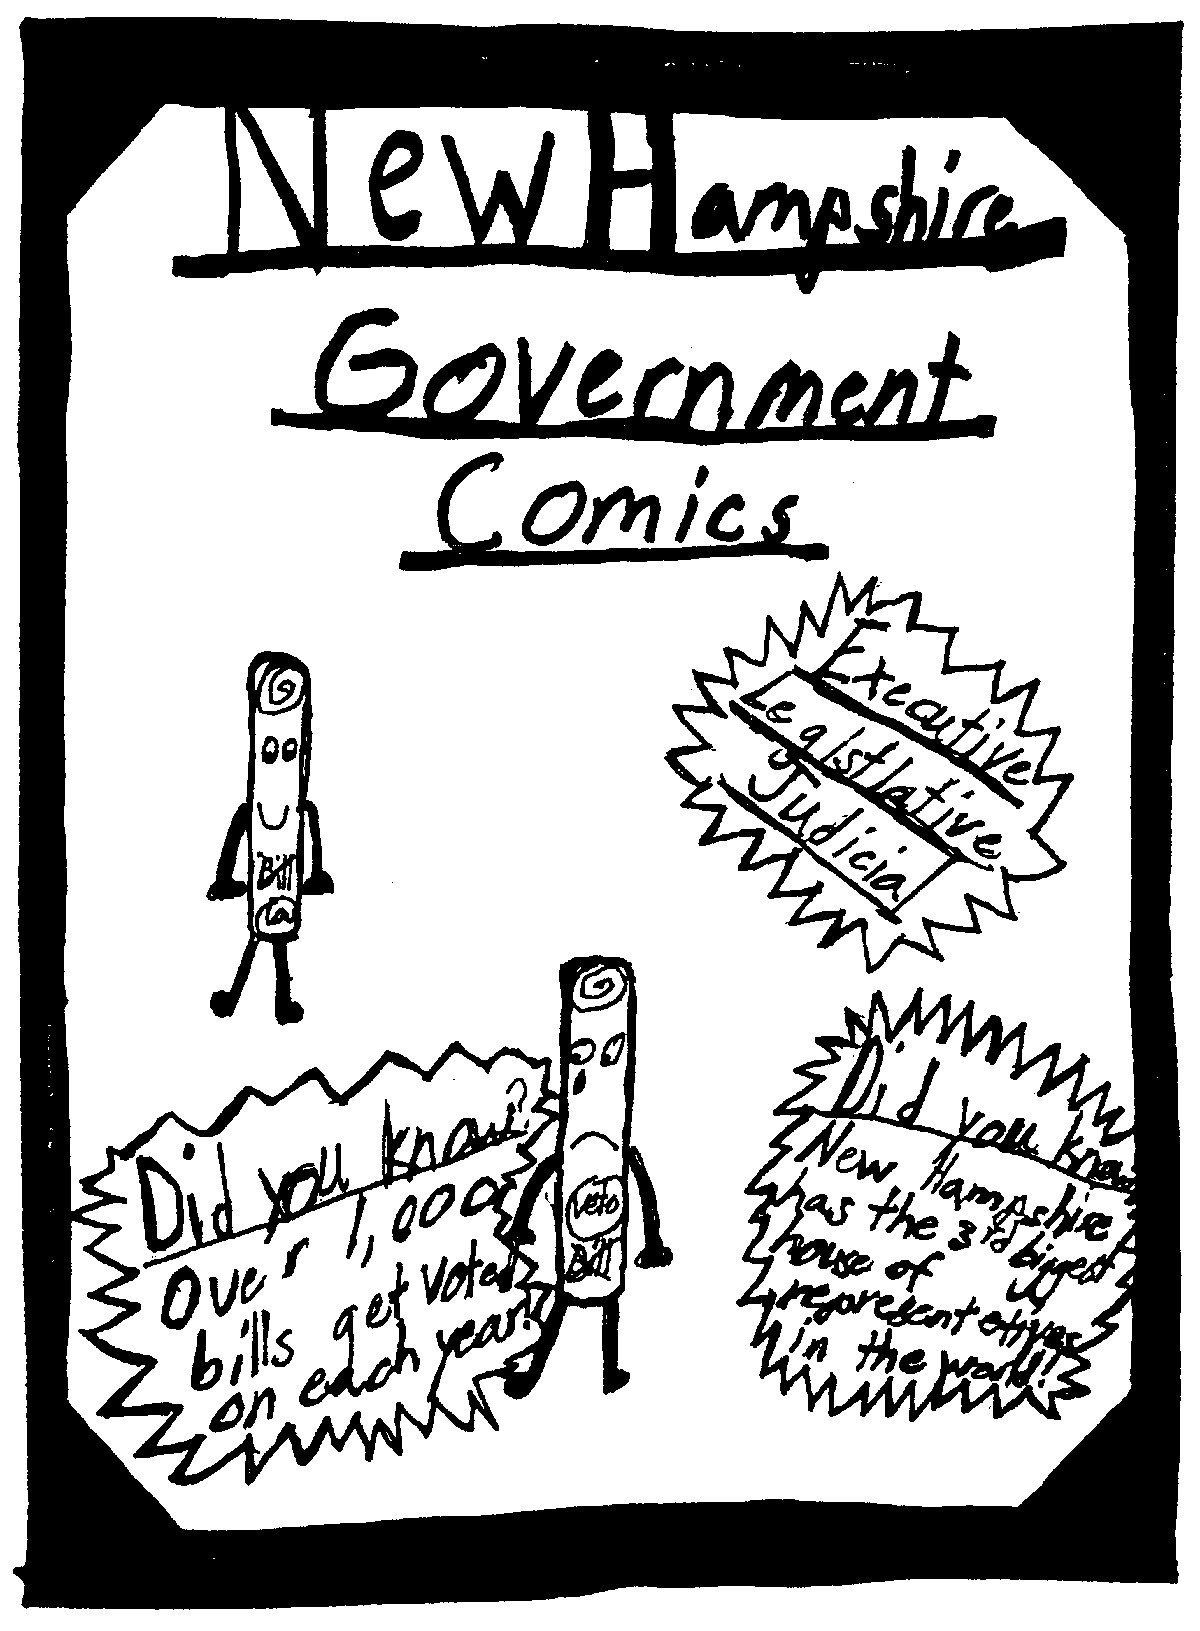 New Hampshire
Government
Comics
Executive
Legistlative
Judicia
Bill
Did you know?
Over 1,000
bills get voted
on each year!
Veto
Bill
Did you know
New Hampshire
has the 3rd biggest
house of
representatives
in the world!